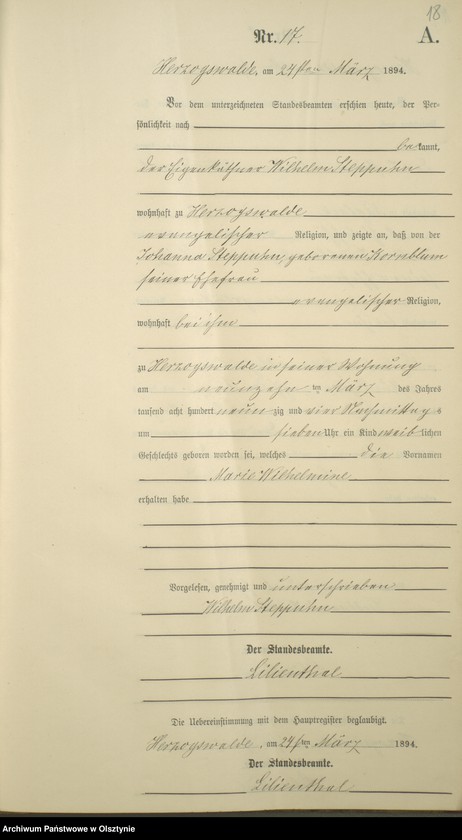 18
Nr. 17. A.
Herzogswalde, am 24sten März 1894.
Vor dem unterzeichneten Standesbeamten erschien heute, der Per-
sönlichkeit nach
bekannt,
der Eigenkäthner Wilhelm Steppuhn
wohnhaft zu Herzogswalde
evangelischer Religion, und zeigte an, daß von der
Johanna Steppuhn, geborenen Kornblum
seiner Ehefrau
evangelischer Religion,
wohnhaft bei ihm
zu Herzogswalde in seiner Wohnung
am neunzehn ten März des Jahres
tausend acht hundert neun zig und vier Nachmittags
um sieben Uhr ein Kind weib lichen
Geschlechts geboren worden sei, welches die Vornamen
Marie Wilhelmine
erhalten habe
Vorgelesen, genehmigt und unterschrieben
Wilhelm Steppuhn
Der Standesbeamte.
Lilienthal
Die Uebereinstimmung mit dem Hauptregister beglaubigt.
Herzogswalde, am 24sten März 1894.
Der Standesbeamte.
Lilienthal
Archiwum Państwowe w Olsztynie